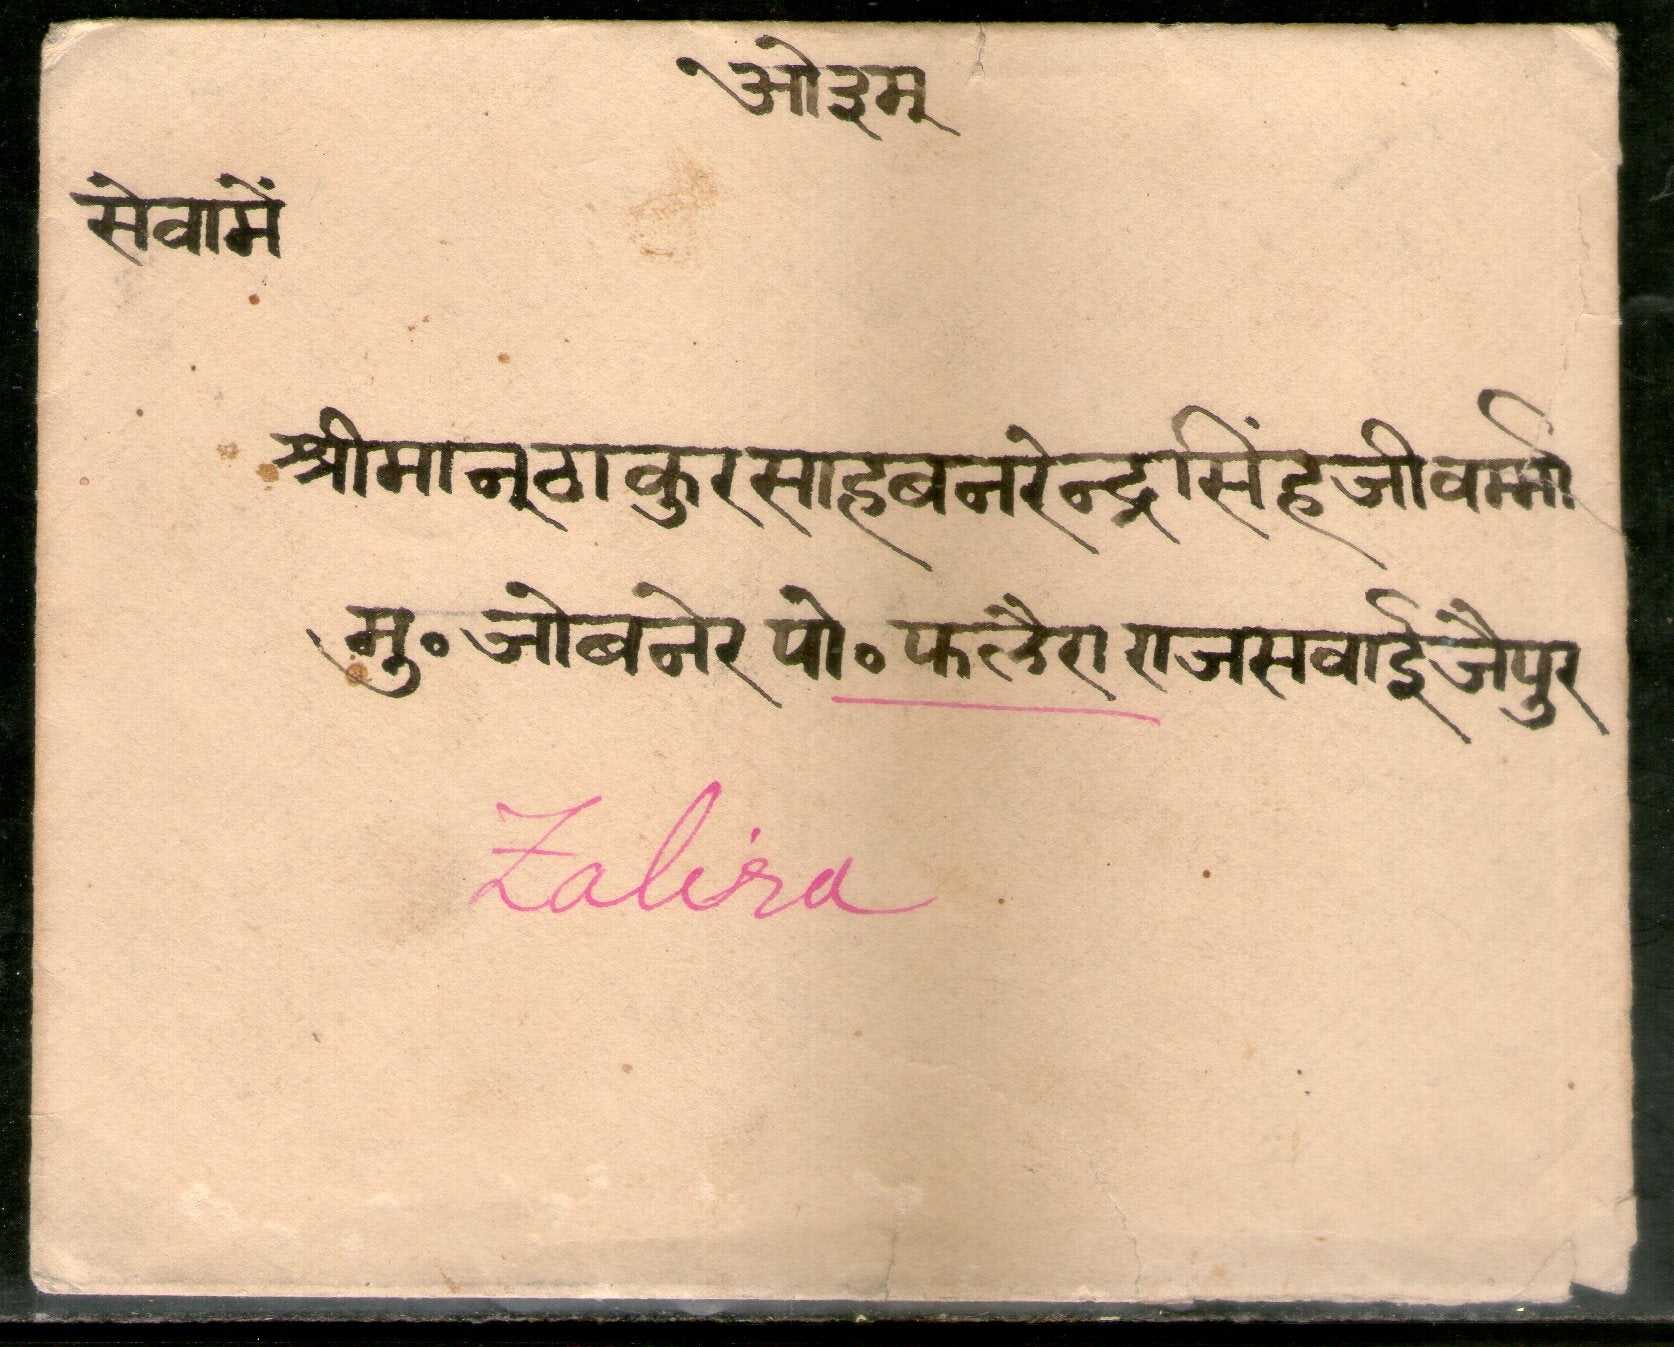 ओ३म्
सेवामें
श्रीमान् ठाकुर साहब नरेन्द्रसिंह जी वर्म्मा
मु० जोबनेर पो० फलैरा राज सवाई जैपुर